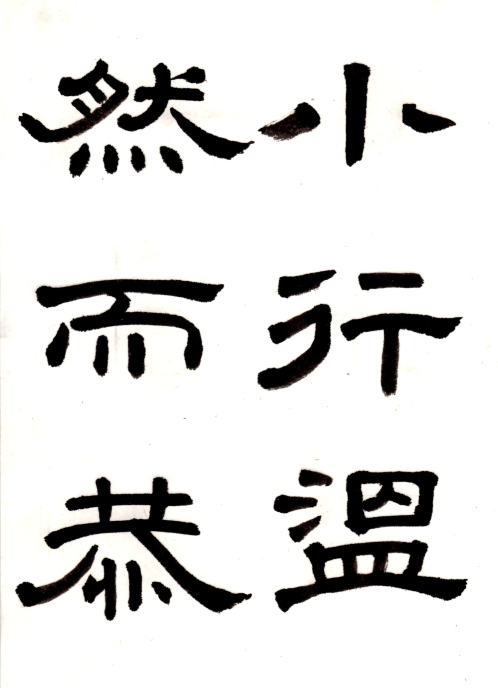 小行溫
然而恭